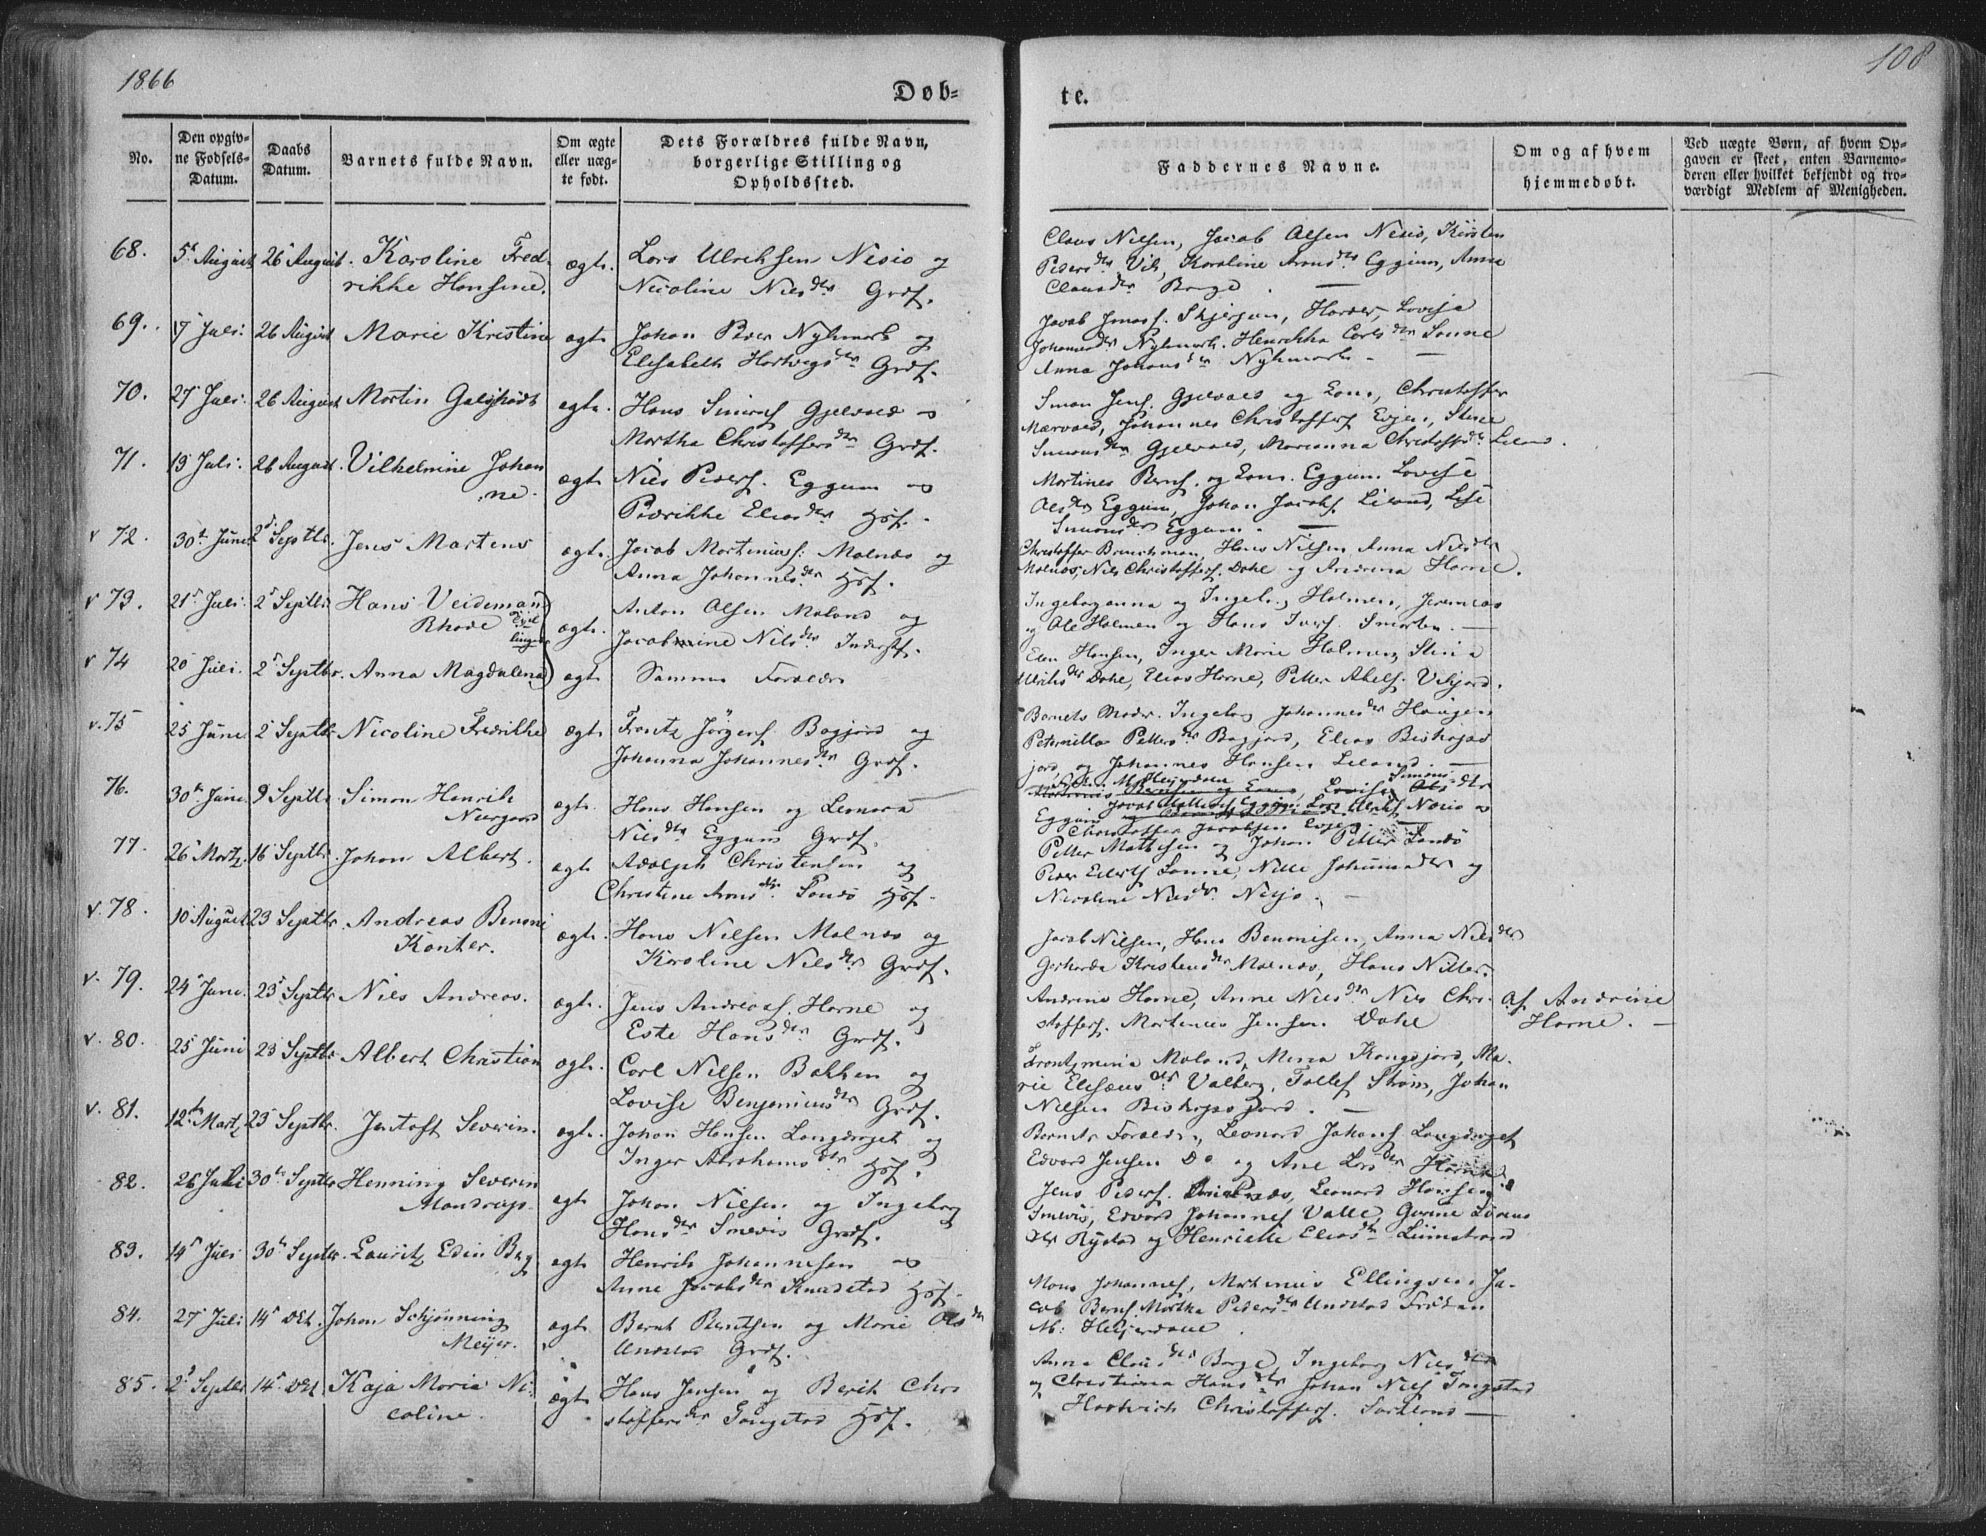 1866
Døb=
te.
108
No.
Den opgiv-
ne Fødsels-
Datum.
Daabs
Datum.
Barnets fulde Navn.
Om ægte
eller uæg-
te født.
Dets Forældres fulde Navn,
borgerlige Stilling og
Opholdssted.
Faddernes Navne.
Om og af hvem
hjemmedøbt.
Ved uægte Børn, af hvem Op-
gaven er skeet, enten Barnemo-
deren eller hvilket bekjendt og tro-
værdigt Medlem af Menigheden.
68. 5t August 26 August. Karoline Fred-
rikke Hansine.
ægte.
Lars Ulriksen Nesio og
Nicoline Nilsdtr Grdf.
Claus Nilsen, Jacob Olsen Nesio, Kirsten
Pedersdtr Vik, Karoline Arnsdtr Eggum, Anna
Clausdtr Borge.
69. 17 Juli. 26 August Marie Kristine
ægte
Johan Peder Nykmark og
Elisabeth Hartvigsdtr Grdf.
Nykmark. Henrikka Carlsdtr Sonne
Anna Johansdtr Nykmark.
70. 27 Juli. 26 August Martin
ægte.
Hans Simonsf Gjelvold og
Martha Christoffersdtr Grdf.
Simon Jensf. Gjelvold og Kone, Christoffer
Mærvold, Johannes Christoffersf Evjen, Stine
Simonsdtr Gjelvold, Marianna Christoffsdtr Leland.
71. 19 Juli. 26 August. Vilhelmine Johan
ne.
ægte
Nils Pedersf. Eggum og
Pedrikke Eliasdtr Hsf.
Martines Bernsf. og Kone. Eggum. Lovise
Olsdtr Eggum, Johan Jacobsf. Leland, Lise
Simonsdtr Eggum.
v 72. 30t Juni 2d Septbr. Jens Martens
ægte.
Jacob Mortensf. Molnæs og
Anna Johannesdtr Hsf.
Christoffer Brinchman, Hans Nilsen, Anna Nilsdtr
Molnæs, Nils Christoffersf. Dahl og Andrina Horne.
v 73. 21d Juli 2d Septbr Hans Veideman
Rhode
Tvil
linger
ægte.
Anton Olsen Moland og
Jacobmine Nilsdtr Inderstf.
Ingeboranna og Holmen, Jeremias
og Ole Holmen og Hans Iversf. Smorten.
v 74 20 Juli. 2d Septbr. Anna Magdalena
ægte
Samme Forældre
Elen Hansen, Inger Marie Holmen, Stine
Ulriksdtr Dahl, Elias Horne, Petter Abelsf. Vikjord.
v. 75 25 Juni 2 Septbr Nicoline Fredrikke
ægte.
Frantz Jørgensf Bøgjord og
Johanna Johannesdtr Grdf.
Barnets Moder. Ingeborg Johannesdtr Haugen
Petternilla Pettersdtr Bøgjord, Elias Biskops
jord, og Johannes Hansen Leland.
76. 30t Juni 9 Septbr. Simon Henrik
Neergaard
ægte.
Hans Hansen og Leonora
Nilsdtr Eggum Grdf.
Martines Bernsen og Kone, Lovise Simonsdtr
Eggum
Christoffer Jacobsen Evjen.
77. 26 Martz 16 Septbr. Johan Albert.
ægte
Adolph Christensen og
Christine Arnsdtr. Sandø Hsf.
Petter Mathisen og Johan Petter Sandø
Peder Eilertsf Sonne, Nille Johannesdtr og
Nicoline Nilsdtr. Nesjo.
v. 78. 10 August 23 Septbr. Andreas Benoni
Kanter.
ægte.
Hans Nilsen Molnæs og
Karoline Nilsdtr. Grdf.
Jacob Nilsen, Hans Benonisen, Anna Nilsdtr
Gerharda Kristensdtr Molnæs, Hans Nilter.
v. 79. 24d Juni. 23d Septbr Nils Andreas.
ægte.
Jens Andreasf. Horne og
Este Hansdtr Grdf.
Andrine Horne, Anne Nilsdtr. Nils Chri-
stoffersf. Mortenus Jensen. Dahl
Af Andrine
Horne.
v. 80. 25d Juni 23 Septbr. Albert Christian
ægte.
Carl Nilsen Bakken og
Lovise Benjaminsdtr Grdf.
Frantzmina Moland, Mina Kongsjord, Ma-
rie Eliseusdtr Valberg, Tollef Strøm, Johan
Nilsen Biskopsjord.
v. 81. 12te Martz 23 Septbr. Jentoft Severin.
ægte.
Johan Hansen Langdraget og
Inger Abrahamsdtr Hsf.
Barnets Forældre, Leonard Johansf Langdraget
Edvard Jensen Do og Ane Larsdtr Horne
82. 26 Juli 30te Septbr Henning Severin
Mandrup.
ægte
Johan Nilsen og Ingeborg
Hansdtr Smevis Grdf.
Jens Pedersf. Leonard Hansen
Smevis, Edvard Johannesf Valle, Gurine Larens
dtr Rystad og Henriette Eliasdtr Limstrand
83. 14d Juli 30te Septbr. Lauritz Edin Berg
ægte
Henrik Johannesen og
Anne Jacobsdtr Knudstad Hsf.
Mons Johannesf, Martinus Ellingsen, Ja-
cob Bernsf Martha Pedersdtr Undstad Fredrik
M: Heierdahl.
84. 27 Juli 14d Oct. Johan Schjønning
Meyer.
ægte
Bernt Berntsen og Marie Olsdtr
Undstad Grdf.
Anna Clausdtr Borge, Ingeborg Nilsdtr
og Christiana Hansdtr Johan Nilsf Tangstad
Hartvich Christoffersf. Sortland
85. 2d Septbr 14d Oct. Kaja Maria Ni-
coline.
ægte
Hans Jensen og Berit Chri
stoffersdtr Tangstad Hsf.